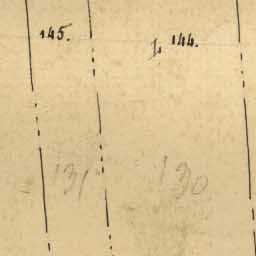 145.
L 144.
131
130